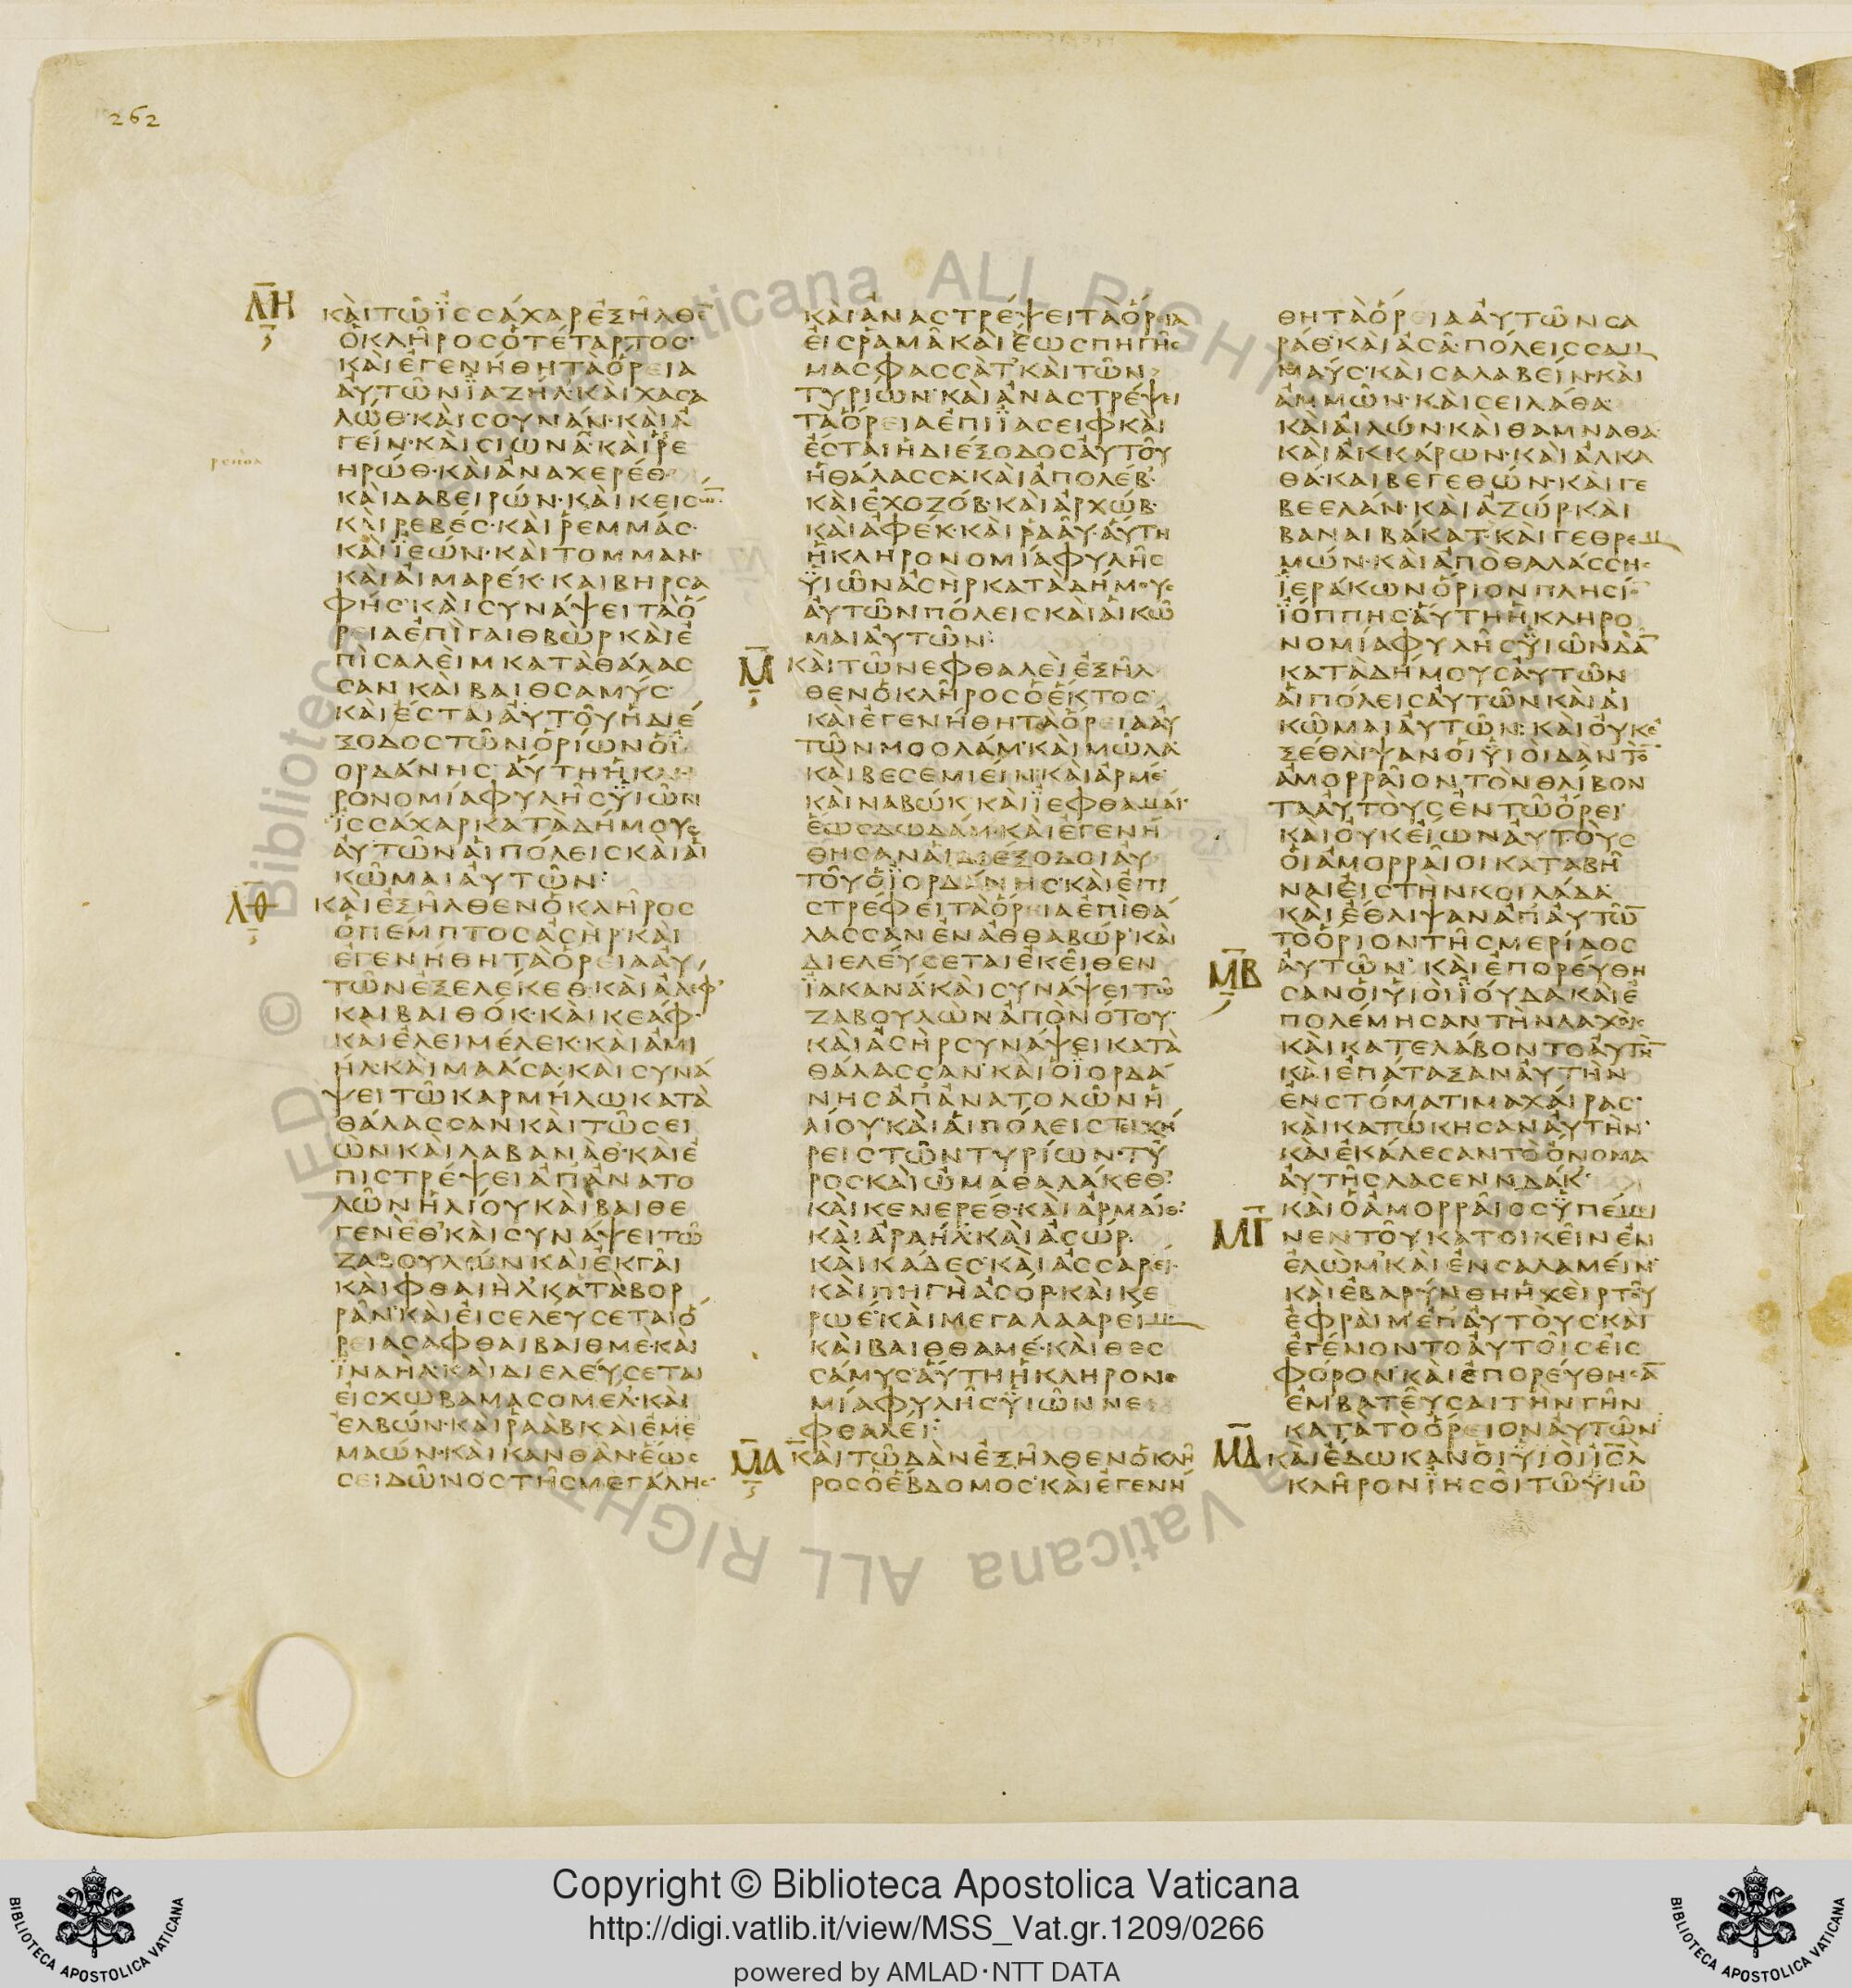 262
ΛΗ
ΚΑΙΤΩΙΣΣΑΧΑΡΕΞΗΛΘΕ
ΟΚΛΗΡΟΣΟΤΕΤΑΡΤΟΣ
ΚΑΙΕΓΕΝΗΘΗΤΑΟΡΕΙΑ
ΑΥΤΩΝΙΑΖΗΛ·ΚΑΙΧΑΣΑ
ΛΩΘ·ΚΑΙΣΟΥΝΑΝ·ΚΑΙΑ
ΓΕΙΝ·ΚΑΙΣΙΩΝΑ·ΚΑΙΡΕ
ΗΡΩΘ·ΚΑΙΑΝΑΧΕΡΕΘ·
ΚΑΙΔΑΒΕΙΡΩΝ·ΚΑΙΚΕΙΣΩ̅·
ΚΑΙΡΕΒΕΣ·ΚΑΙΡΕΜΜΑΣ·
ΚΑΙΙΕΩΝ·ΚΑΙΤΟΜΜΑΝ·
ΚΑΙΑΙΜΑΡΕΚ·ΚΑΙΒΗΡΣΑ
ΦΗΣ·ΚΑΙΣΥΝΑΨΕΙΤΑΟ
ΡΕΙΑΕΠΙΓΑΙΘΒΩΡΚΑΙΕ
ΠΙΣΑΛΕΙΜΚΑΤΑΘΑΛΑΣ
ΣΑΝΚΑΙΒΑΙΘΣΑΜΥΣ·
ΚΑΙΕΣΤΑΙΑΥΤΟΥΗΔΙΕ
ΞΟΔΟΣΤΩΝΟΡΙΩΝΟΙ
ΟΡΔΑΝΗΣ·ΑΥΤΗΗΚΛΗ
ΡΟΝΟΜΙΑΦΥΛΗΣΥΙΩΝ
ΙΣΣΑΧΑΡΚΑΤΑΔΗΜΟΥΣ
ΑΥΤΩΝΑΙΠΟΛΕΙΣΚΑΙΑΙ
ΚΩΜΑΙΑΥΤΩΝ:
ΛΘ
ΚΑΙΕΞΗΛΘΕΝΟΚΛΗΡΟΣ
ΟΠΕΜΠΤΟΣΑΣΗΡ·ΚΑΙ
ΕΓΕΝΗΘΗΤΑΟΡΕΙΑΑΥ
ΤΩΝΕΞΕΛΕΚΕΘ·ΚΑΙΑΛΕΦ·
ΚΑΙΒΑΙΘΟΚ·ΚΑΙΚΕΑΦ·
ΚΑΙΕΛΕΙΜΕΛΕΚ·ΚΑΙΑΜΙ
ΗΛ·ΚΑΙΜΑΑΣΑ·ΚΑΙΣΥΝΑ
ΨΕΙΤΩΚΑΡΜΗΛΩΚΑΤΑ
ΘΑΛΑΣΣΑΝΚΑΙΤΩΣΕΙ
ΩΝΚΑΙΛΑΒΑΝΑΘ·ΚΑΙΕ
ΠΙΣΤΡΕΨΕΙΑΠΑΝΑΤΟ
ΛΩΝΗΛΙΟΥΚΑΙΒΑΙΘΕ
ΓΕΝΕΘ·ΚΑΙΣΥΝΑΨΕΙΤΩ
ΖΑΒΟΥΛΩΝΚΑΙΕΚΓΑΙ
ΚΑΙΦΘΑΙΗΛ·ΚΑΤΑΒΟΡ
ΡΑΝ·ΚΑΙΕΙΣΕΛΕΥΣΕΤΑΙΟ
ΡΕΙΑΣΑΦΘΑΙΒΑΙΘΜΕ·ΚΑΙ
ΙΝΑΗΛ·ΚΑΙΔΙΕΛΕΥΣΕΤΑΙ
ΕΙΣΧΩΒΑΜΑΣΟΜΕΛ·ΚΑΙ
ΕΛΒΩΝ·ΚΑΙΡΑΑΒΚΑΙΕΜΕ
ΜΑΩΝ·ΚΑΙΚΑΝΘΑΝ·ΕΩΣ
ΣΕΙΔΩΝΟΣΤΗΣΜΕΓΑΛΗΣ
ΚΑΙΑΝΑΣΤΡΕΨΕΙΤΑΟΡΕΙΑ
ΕΙΣΡΑΜΑΚΑΙΕΩΣΠΗΓΗΣ
ΜΑΣΦΑΣΣΑΤ·ΚΑΙΤΩΝ
ΤΥΡΙΩΝ·ΚΑΙΑΝΑΣΤΡΕΨΕΙ
ΤΑΟΡΕΙΑΕΠΙΙΑΣΕΙΦΚΑΙ
ΕΣΤΑΙΗΔΙΕΞΟΔΟΣΑΥΤΟΥ
ΗΘΑΛΑΣΣΑ·ΚΑΙΑΠΟΛΕΒ·
ΚΑΙΕΧΟΖΟΒ·ΚΑΙΑΡΧΩΒ·
ΚΑΙΑΦΕΚ·ΚΑΙΡΑΑΥ·ΑΥΤΗ
ΗΚΛΗΡΟΝΟΜΙΑΦΥΛΗΣ
ΥΙΩΝΑΣΗΡΚΑΤΑΔΗΜΟΥΣ
ΑΥΤΩΝΠΟΛΕΙΣΚΑΙΑΙΚΩ
ΜΑΙΑΥΤΩΝ:
Μ
ΚΑΙΤΩΝΕΦΘΑΛΕΙΕΞΗΛ
ΘΕΝΟΚΛΗΡΟΣΟΕΚΤΟΣ·
ΚΑΙΕΓΕΝΗΘΗΤΑΟΡΕΙΑΑΥ
ΤΩΝΜΟΟΛΑΜ·ΚΑΙΜΩΛΑ
ΚΑΙΒΕΣΕΜΙΕΙΝ·ΚΑΙΑΡΜΕ
ΚΑΙΝΑΒΩΚΚΑΙΙΕΦΘΑΜΑΙ·
ΕΩΣΔΩΔΑΜ·ΚΑΙΕΓΕΝΗ
ΘΗΣΑΝΑΙΔΙΕΞΟΔΟΙΑΥ
ΤΟΥΟΙΟΡΔΑΝΗΣ·ΚΑΙΕΠΙ
ΣΤΡΕΦΕΙΤΑΟΡΕΙΑΕΠΙΘΑ
ΛΑΣΣΑΝΕΝΑΘΘΑΒΩΡ·ΚΑΙ
ΔΙΕΛΕΥΣΕΤΑΙΕΚΕΙΘΕΝ
ΙΑΚΑΝΑ·ΚΑΙΣΥΝΑΨΕΙΤΩ
ΖΑΒΟΥΛΩΝΑΠΟΝΟΤΟΥ·
ΚΑΙΑΣΗΡΣΥΝΑΨΕΙΚΑΤΑ
ΘΑΛΑΣΣΑΝ·ΚΑΙΟΙΟΡΔΑ
ΝΗΣΑΠΑΝΑΤΟΛΩΝΗ
ΛΙΟΥ·ΚΑΙΑΙΠΟΛΕΙΣΤΕΙΧΗ
ΡΕΙΣΤΩΝΤΥΡΙΩΝ·ΤΥ
ΡΟΣΚΑΙΩΜΑΘΑΔΑΚΕΘ·
ΚΑΙΚΕΝΕΡΕΘ·ΚΑΙΑΡΜΑΙΘ·
ΚΑΙΑΡΑΗΛ·ΚΑΙΑΣΩΡ·
ΚΑΙΚΑΔΕΣ·ΚΑΙΑΣΣΑΡΕΙ·
ΚΑΙΠΗΓΗΑΣΟΡ·ΚΑΙΚΕ
ΡΩΕ·ΚΑΙΜΕΓΑΛΑΑΡΕΙΜ·
ΚΑΙΒΑΙΘΘΑΜΕ·ΚΑΙΘΕΣ
ΣΑΜΥΣ·ΑΥΤΗΗΚΛΗΡΟΝΟ
ΜΙΑΦΥΛΗΣΥΙΩΝΝΕ
ΦΘΑΛΕΙ:
ΜΑ
ΚΑΙΤΩΔΑΝΕΞΗΛΘΕΝΟΚΛΗ
ΡΟΣΟΕΒΔΟΜΟΣ·ΚΑΙΕΓΕΝΗ
ΘΗΤΑΟΡΕΙΑΑΥΤΩΝΣΑ
ΡΑΘ·ΚΑΙΑΣΑ·ΠΟΛΕΙΣΣΑΜ
ΜΑΥΣ·ΚΑΙΣΑΛΑΒΕΙΝ·ΚΑΙ
ΑΜΜΩΝ·ΚΑΙΣΕΙΛΑΘΑ·
ΚΑΙΑΙΛΩΝ·ΚΑΙΘΑΜΝΑΘΑ·
ΚΑΙΑΚΚΑΡΩΝ·ΚΑΙΑΛΚΑ
ΘΑ·ΚΑΙΒΕΓΕΘΩΝ·ΚΑΙΓΕ
ΒΕΕΛΑΝ·ΚΑΙΑΖΩΡ·ΚΑΙ
ΒΑΝΑΙΒΑΚΑΤ·ΚΑΙΓΕΘΡΕΜ
ΜΩΝ·ΚΑΙΑΠΟΘΑΛΑΣΣΗΣ
ΙΕΡΑΚΩΝΟΡΙΟΝΠΛΗΣΙΟ̅
ΙΟΠΠΗΣ·ΑΥΤΗΗΚΛΗΡΟ
ΝΟΜΙΑΦΥΛΗΣΥΙΩΝΔΑ̅
ΚΑΤΑΔΗΜΟΥΣΑΥΤΩΝ
ΑΙΠΟΛΕΙΣΑΥΤΩΝΚΑΙΑΙ
ΚΩΜΑΙΑΥΤΩΝ:ΚΑΙΟΥΚΕ
ΞΕΘΛΙΨΑΝΟΙΥΙΟΙΔΑΝΤΟ̅
ΑΜΟΡΡΑΙΟΝΤΟΝΘΛΙΒΟΝ
ΤΑΑΥΤΟΥΣΕΝΤΩΟΡΕΙ·
ΚΑΙΟΥΚΕΙΩΝΑΥΤΟΥΣ
ΟΙΑΜΟΡΡΑΙΟΙΚΑΤΑΒΗ
ΝΑΙΕΙΣΤΗΝΚΟΙΛΑΔΑ
ΚΑΙΕΘΛΙΨΑΝΑΠΑΥΤΩ̅
ΤΟΟΡΙΟΝΤΗΣΜΕΡΙΔΟΣ
ΜΒ
ΑΥΤΩΝ·ΚΑΙΕΠΟΡΕΥΘΗ
ΣΑΝΟΙΥΙΟΙΙΟΥΔΑΚΑΙΕ
ΠΟΛΕΜΗΣΑΝΤΗΝΛΑΧΕΙΣ
ΚΑΙΚΑΤΕΛΑΒΟΝΤΟΑΥΤΗ̅
ΚΑΙΕΠΑΤΑΞΑΝΑΥΤΗΝ
ΕΝΣΤΟΜΑΤΙΜΑΧΑΙΡΑΣ·
ΚΑΙΚΑΤΩΚΗΣΑΝΑΥΤΗΝ·
ΚΑΙΕΚΑΛΕΣΑΝΤΟΟΝΟΜΑ
ΑΥΤΗΣΛΑΣΕΝΝΔΑΚ·
ΚΑΙΟΑΜΟΡΡΑΙΟΣΥΠΕΜΕΙ
ΜΓ
ΝΕΝΤΟΥΚΑΤΟΙΚΕΙΝΕΝ
ΕΛΩΜ·ΚΑΙΕΝΣΑΛΑΜΕΙΝ·
ΚΑΙΕΒΑΡΥΝΘΗΗΧΕΙΡΤΟΥ
ΕΦΡΑΙΜΕΠΑΥΤΟΥΣ·ΚΑΙ
ΕΓΕΝΟΝΤΟΑΥΤΟΙΣΕΙΣ
ΦΟΡΟΝ·ΚΑΙΕΠΟΡΕΥΘΗΣΑ̅
ΕΜΒΑΤΕΥΣΑΙΤΗΝΓΗΝ
ΚΑΤΑΤΟΟΡΕΙΟΝΑΥΤΩΝ
ΜΔ
ΚΑΙΕΔΩΚΑΝΟΙΥΙΟΙΙΣ̅Λ
ΚΛΗΡΟΝΙΗΣΟΙΤΩΥΙΩ
Copyright © Biblioteca Apostolica Vaticana
http://digi.vatlib.it/view/MSS_Vat.gr.1209/0266
powered by AMLAD·NTT DATA
BIBLIOTECA APOSTOLICA VATICANA
BIBLIOTECA APOSTOLICA VATICANA